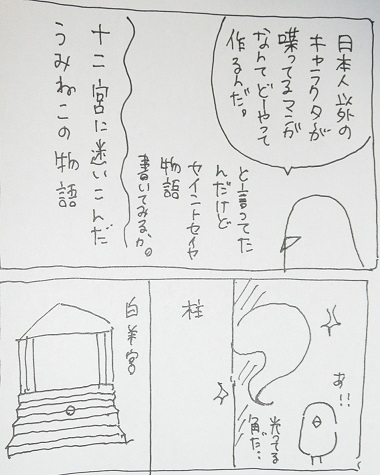 日本人以外の
キャラクタが
喋ってるマンガ
なんてどーやって
作るんだ。
と言ってた
んだけど
セイントセイヤ
物語
書いてみるか。
十二宮に迷いこんだ
うみねこの物語
あ!!
光ってる
角だ…
柱
白羊宮